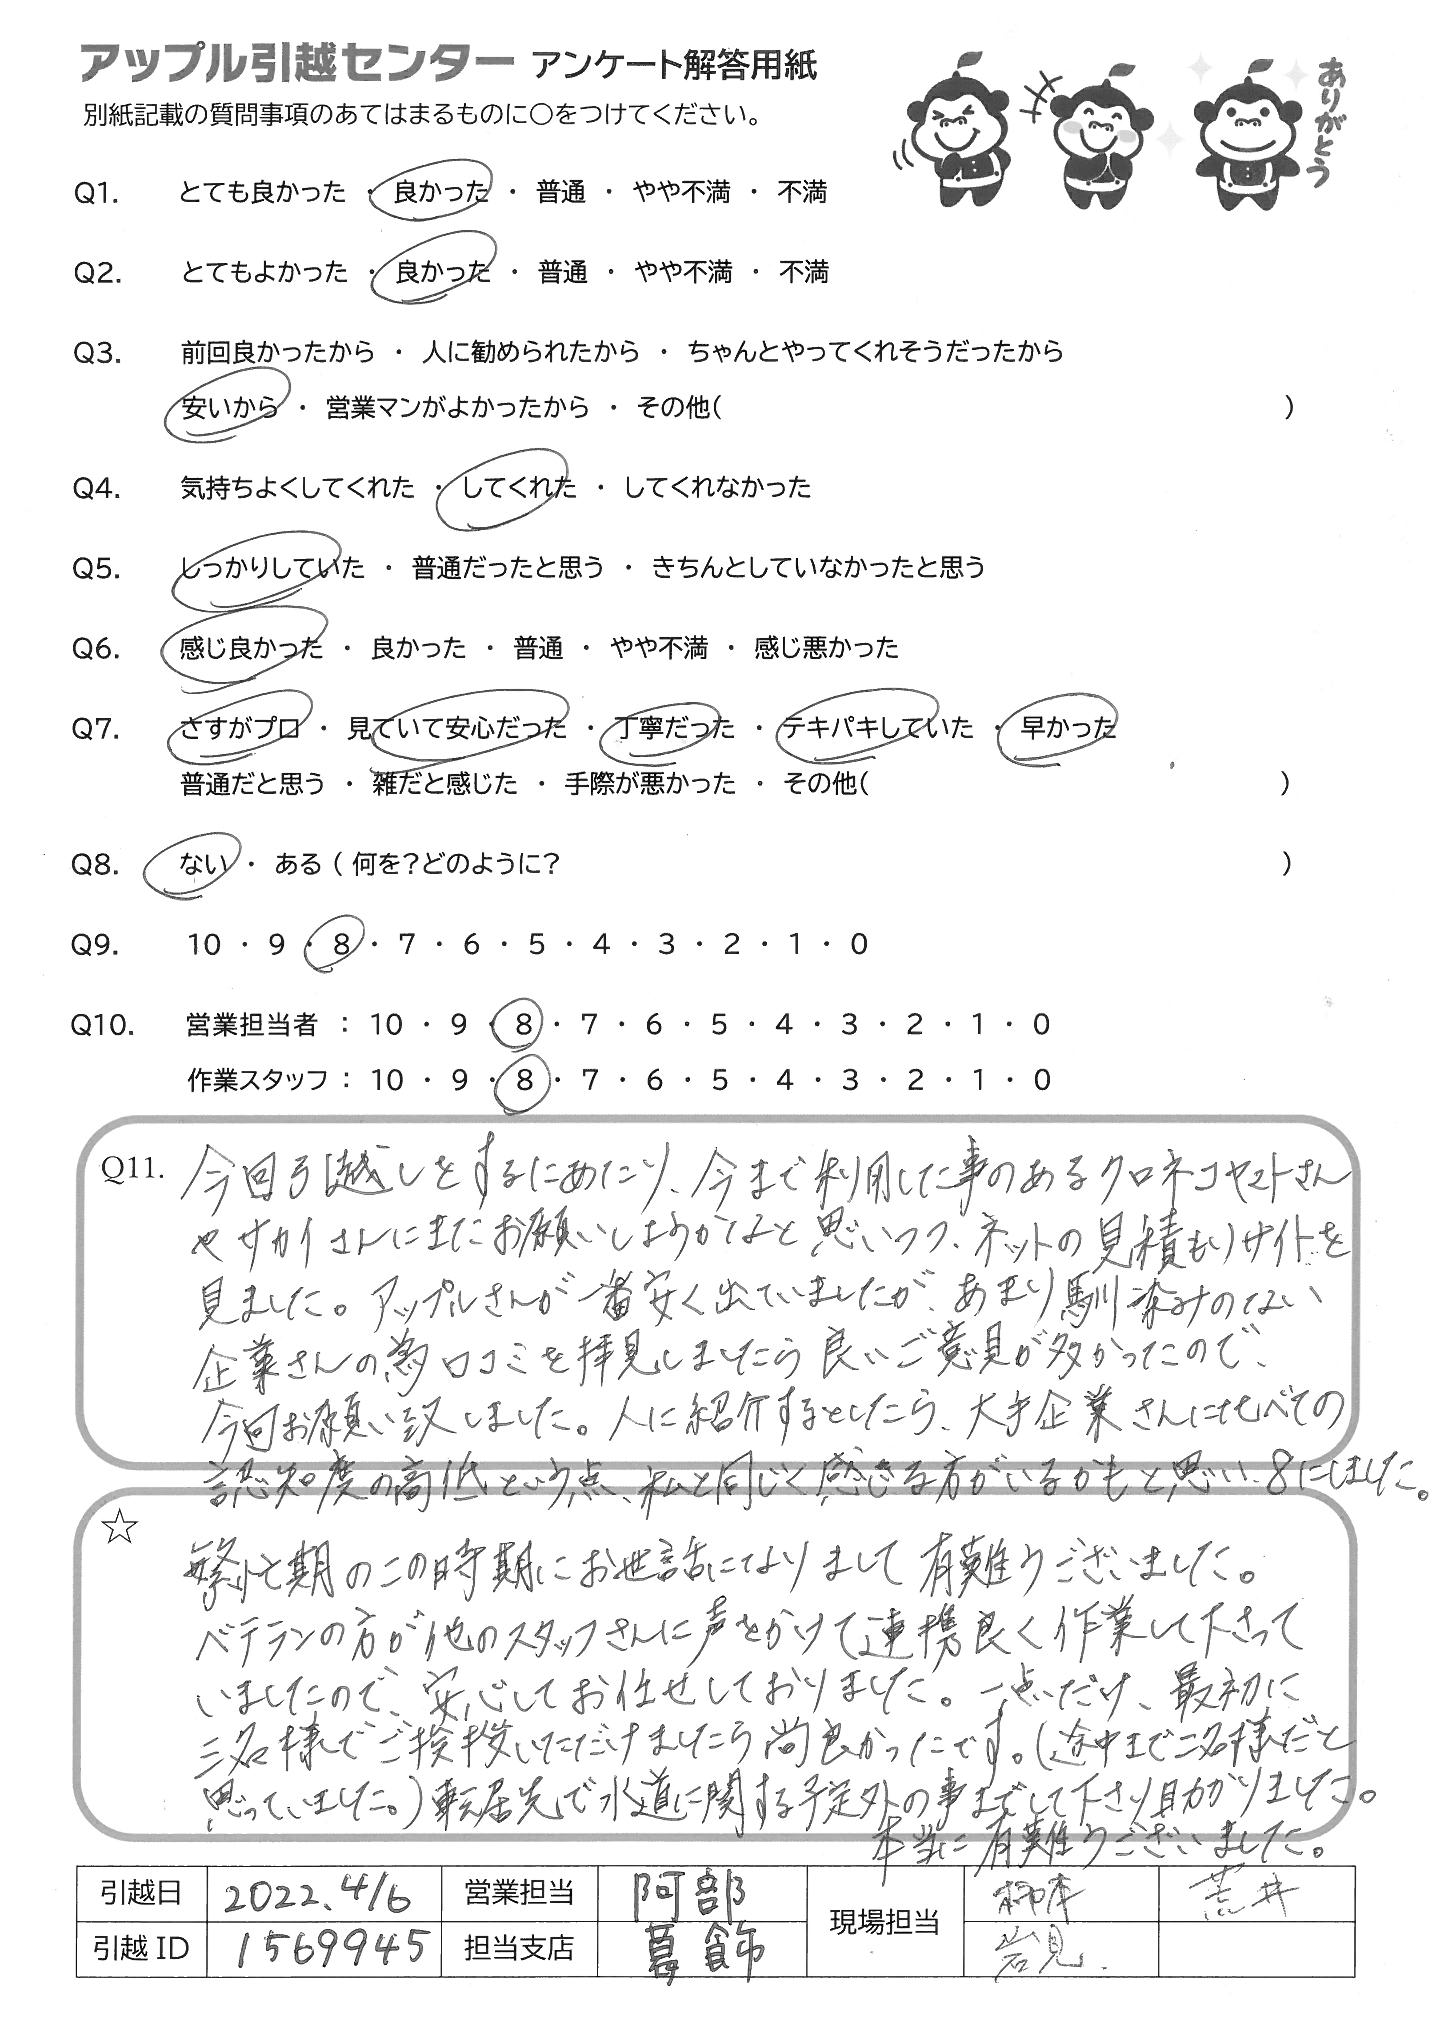 アップル引越センター アンケート解答用紙
別紙記載の質問事項のあてはまるものに○をつけてください。
ありがとう
Q1. とても良かった ・ 良かった ・ 普通 ・ やや不満 ・ 不満
Q2. とてもよかった ・ 良かった ・ 普通 ・ やや不満 ・ 不満
Q3. 前回良かったから ・ 人に勧められたから ・ ちゃんとやってくれそうだったから
安いから ・ 営業マンがよかったから ・ その他( )
Q4. 気持ちよくしてくれた ・ してくれた ・ してくれなかった
Q5. しっかりしていた ・ 普通だったと思う ・ きちんとしていなかったと思う
Q6. 感じ良かった ・ 良かった ・ 普通 ・ やや不満 ・ 感じ悪かった
Q7. さすがプロ ・ 見ていて安心だった ・ 丁寧だった ・ テキパキしていた ・ 早かった
普通だと思う ・ 雑だと感じた ・ 手際が悪かった ・ その他( )
Q8. ない ・ ある ( 何を?どのように? )
Q9. 10 ・ 9 ・ 8 ・ 7 ・ 6 ・ 5 ・ 4 ・ 3 ・ 2 ・ 1 ・ 0
Q10. 営業担当者 : 10 ・ 9 ・ 8 ・ 7 ・ 6 ・ 5 ・ 4 ・ 3 ・ 2 ・ 1 ・ 0
作業スタッフ : 10 ・ 9 ・ 8 ・ 7 ・ 6 ・ 5 ・ 4 ・ 3 ・ 2 ・ 1 ・ 0
Q11. 今回引越しをするにあたり、今まで利用した事のあるクロネコヤマトさん
やサカイさんにまたお願いしようかなと思いつつ、ネットの見積もりサイトを
見ました。アップルさんが一番安く出ていましたが、あまり馴染みのない
企業さんの為口コミを拝見しましたら良いご意見が多かったので、
今回お願い致しました。人に紹介するとしたら、大手企業さんに比べての
認知度の高低という点、私と同じく感じる方がいるかもと思い、8にしました。
☆
繁忙期のこの時期にお世話になりまして有難うございました。
ベテランの方が他のスタッフさんに声をかけて連携良く作業して下さって
いましたので、安心してお任せしておりました。一点だけ、最初に
三名様でご挨拶いただけましたら尚良かったです。(途中まで二名様だと
思っていました。)転居先で水道に関する予定外の事までして下さり助かりました。
本当に有難うございました。
引越日 2022.4/6 営業担当 阿部 現場担当 柳本 荒井
引越ID 1569945 担当支店 葛飾 岩見